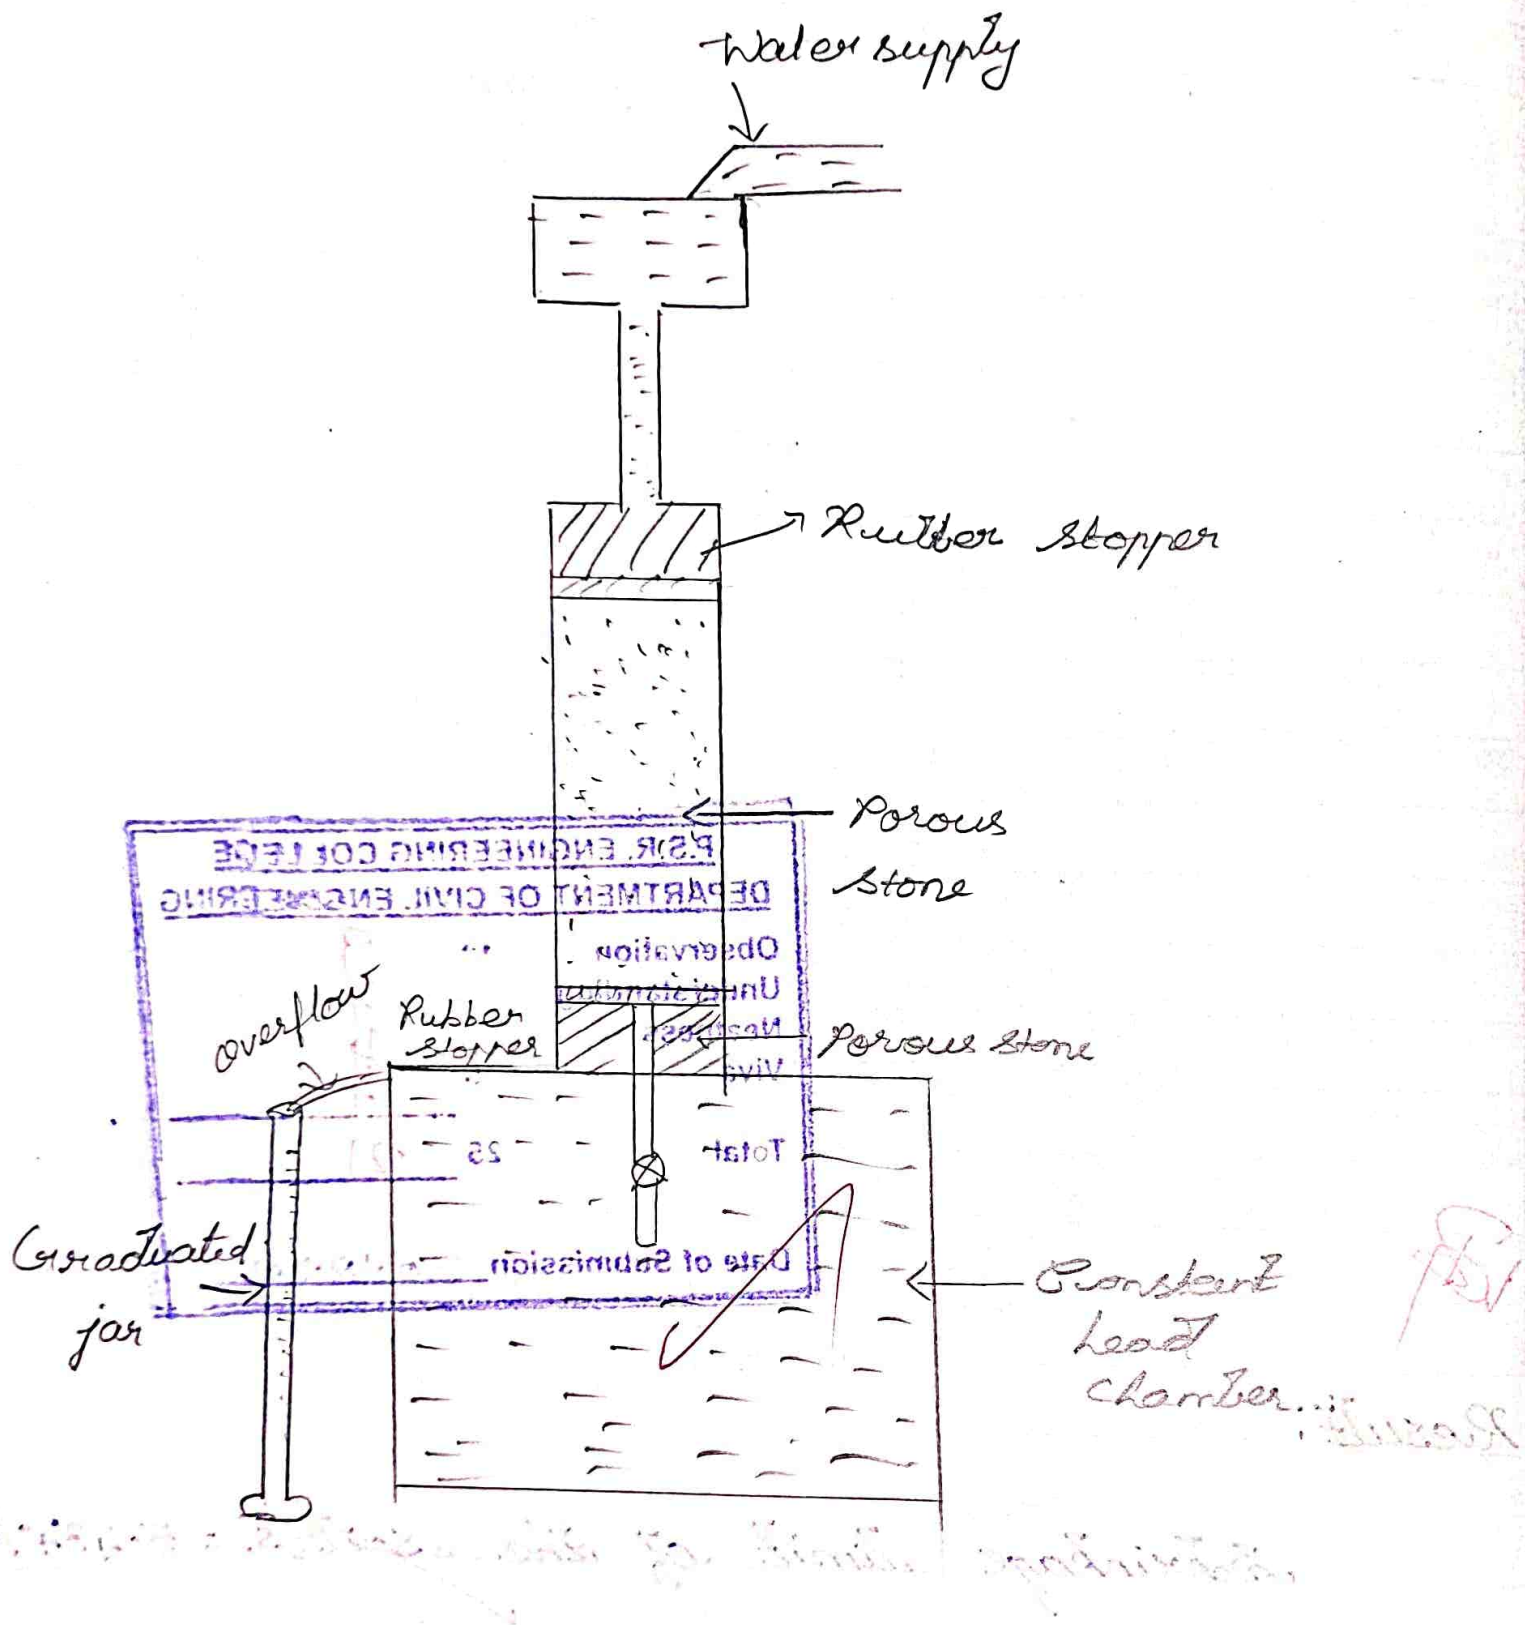 Water supply
Rubber stopper
Porous
stone
P.S.R. ENGINEERING COLLEGE
DEPARTMENT OF CIVIL ENGINEERING
Observation
Understanding
Neatness
Viva
Total 25
Date of Submission
overflow
Rubber
stopper
Porous stone
Graduated
jar
Constant
head
chamber
Result